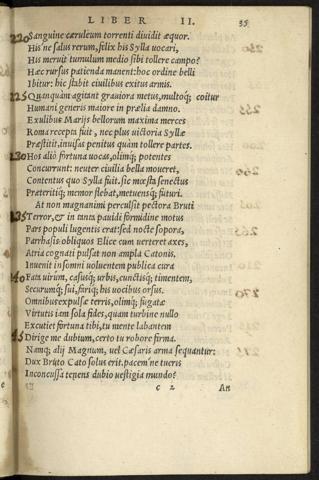 LIBER II. 35
220 Sanguine cæruleum torrenti diuidit æquor.
His ne salus rerum, filix his Sylla uocari,
His meruit tumulum medio sibi tollere campo?
Hæc rursus patienda manent: hoc ordine belli
Ibitur: hic stabit ciuilibus exitus armis.
225 Quanquàm agitant grauiora metus, multoq; coitur
Humani generis maiore in prælia damno.
Exulibus Marijs bellorum maxima merces
Roma recepta fuit, nec plus uictoria Syllæ
Præstitit, inuisas penitus quàm tollere partes.
230 Hos aliò fortuna uocas, olimq; potentes
Concurrunt: neuter ciuilia bella moueret,
Contentus quo Sylla fuit. sic mœsta senectus
Præteritiq; memor flebat, metuensq; futuri.
At non magnanimi percußit pectora Bruti
235 Terror, & in tanta pauidi formidine motus
Pars populi lugentis erat: sed nocte sopora,
Parrhasis obliquos Elice cum uerteret axes,
Atria cognati pulsat non ampla Catonis.
Inuenit insomni uoluentem publica cura
240 Fata uirûm, casusq; urbis, cunctisq; timentem,
Securumq; sui, fariq; his uocibus orsus.
Omnibus expulsæ terris, olimq; fugatæ
Virtutis iam sola fides, quam turbine nullo
Excutiet fortuna tibi, tu mente labantem
245 Dirige me dubium, certo tu robore firma.
Namq; alij Magnum, uel Cæsaris arma sequantur:
Dux Bruto Cato solus erit. pacem'ne tueris
Inconcussa tenens dubio uestigia mundo?
c 2 An